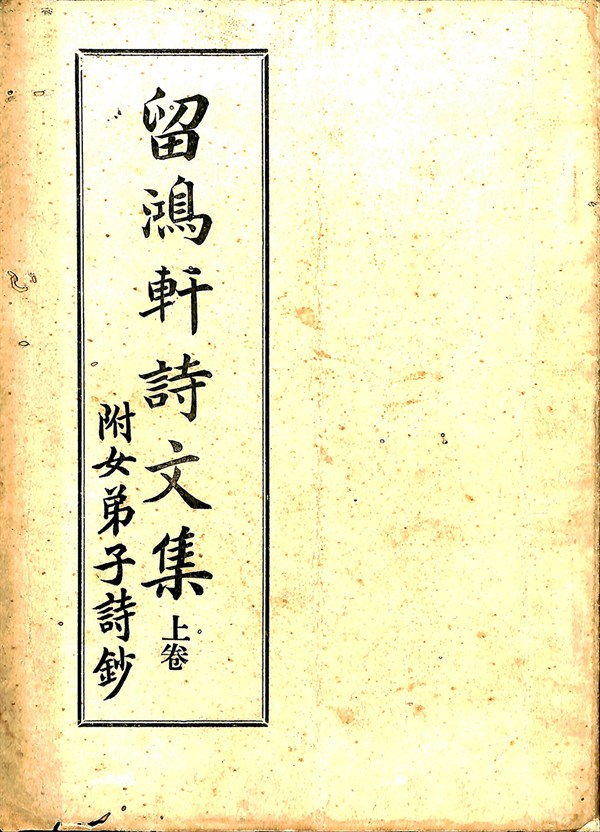 留鴻軒詩文集 上卷
附女弟子詩鈔